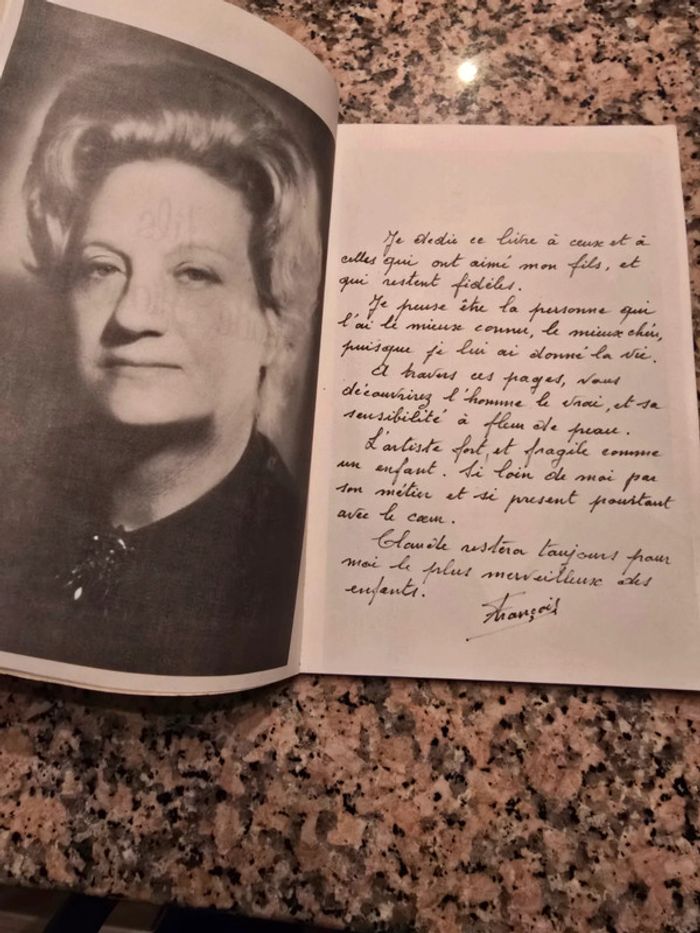 Je dédie ce livre à ceux et à
celles qui ont aimé mon fils, et
qui restent fidèles.
Je pense être la personne qui
l'ai le mieux connu, le mieux chéri,
puisque je lui ai donné la vie.
Et travers ces pages, vous
découvrirez l'homme le vrai, et sa
sensibilité à fleur de peau.
L'artiste fort, et fragile comme
un enfant. Si loin de moi par
son métier et si present pourtant
avec le cœur.
Claude restera toujours pour
moi le plus merveilleux des
enfants.
François